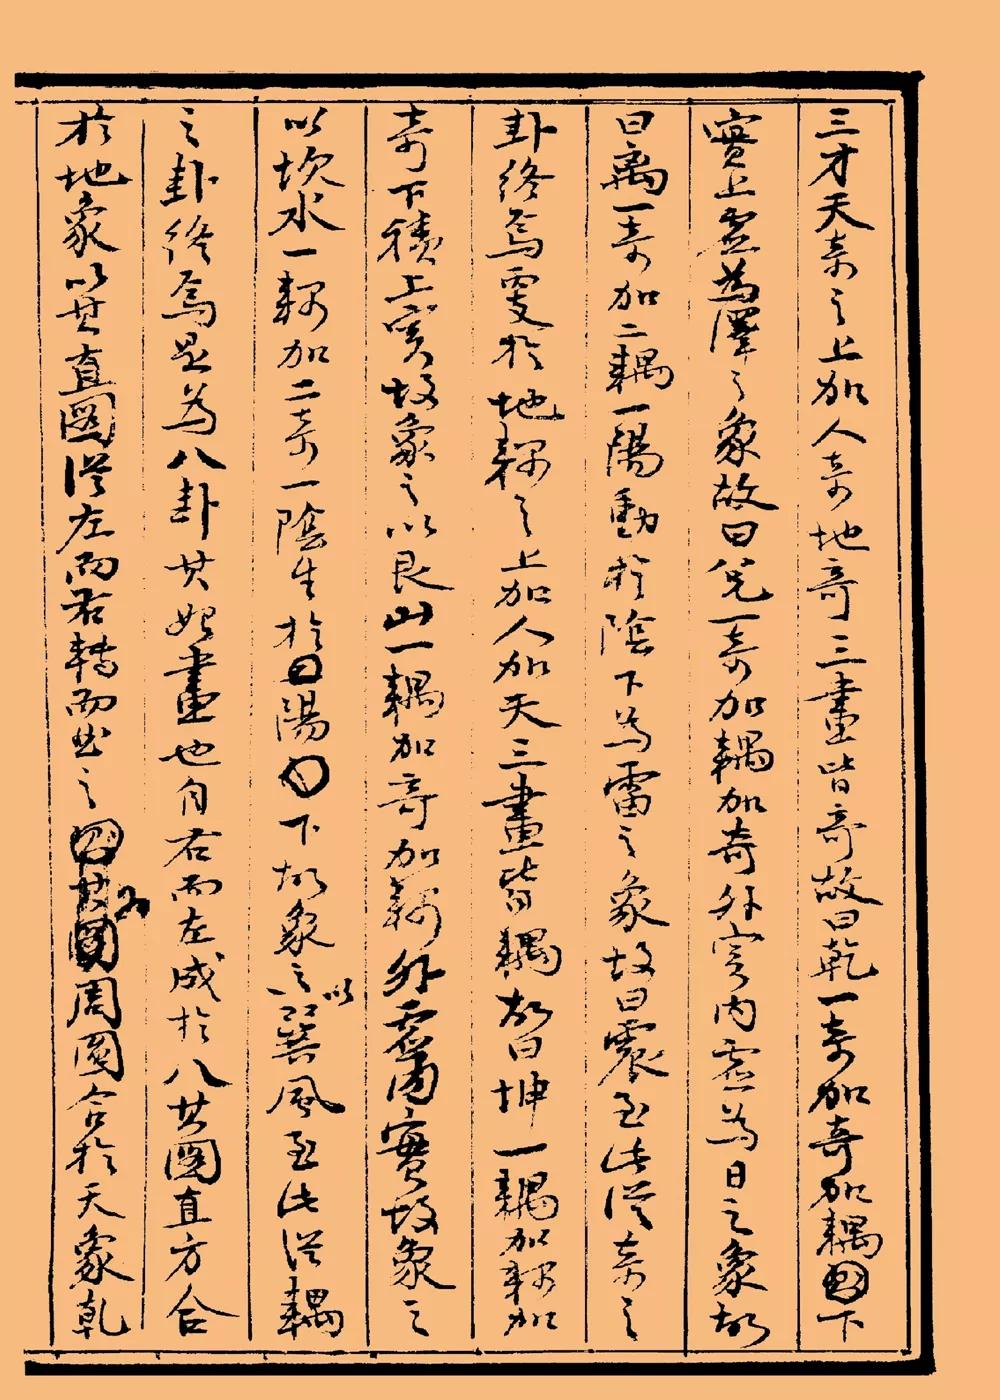 三才天奇之上加人奇地奇三畫皆奇故曰乾一奇加奇加耦下
實上虛為澤之象故曰兌一奇加耦加奇外實內虛為日之象故
曰离一奇加二耦一陽動於陰下為雷之象故曰震至此從奇之
卦終焉變於地耦之上加人加天三畫皆耦故曰坤一耦加耦加
奇下積上實故象之以艮山一耦加奇加耦外虛內實故象之
以坎水一耦加二奇一陰生於陽下故象之以巽風至此從耦
之卦終焉是為八卦其始畫也自右而左成於八其圖直方合
於地象以其直圖從左而右轉而出之為周圓合於天象乾